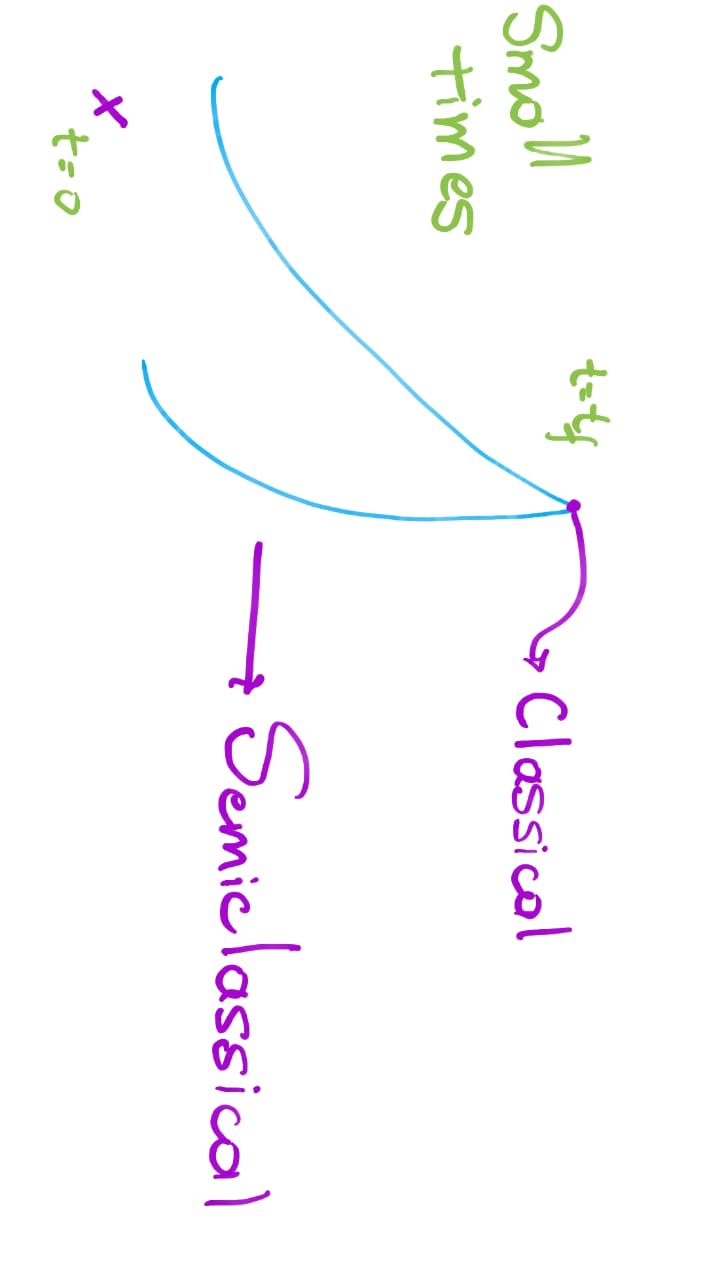 Small
times
t=t_f
Classical
Semiclassical
x
t=0